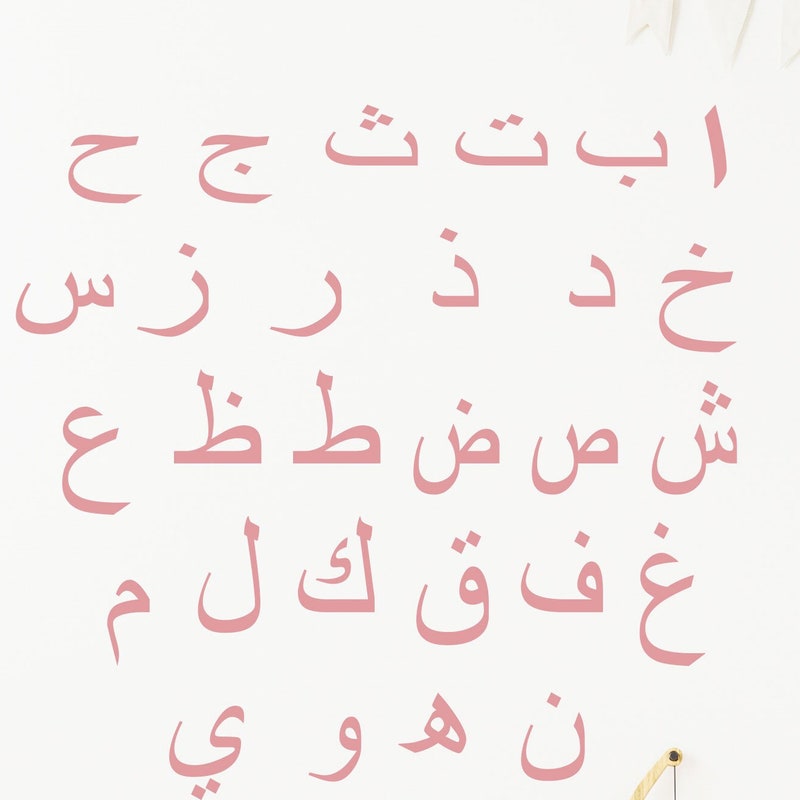 ا ب ت ث ج ح
خ د ذ ر ز س
ش ص ض ط ظ ع
غ ف ق ك ل م
ن ه و ي